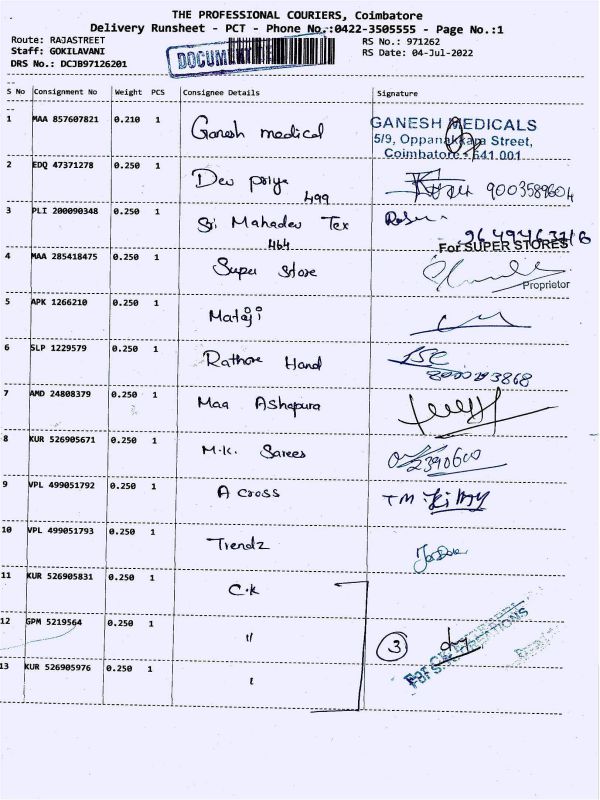 THE PROFESSIONAL COURIERS, Coimbatore
Delivery Runsheet - PCT - Phone No.:0422-3505555 - Page No.:1
Route: RAJASTREET
Staff: GOKILAVANI
DRS No.: DCJB97126201
RS No.: 971262
RS Date: 04-Jul-2022
S No Consignment No Weight PCS Consignee Details Signature
1 MAA 857607821 0.210 1 Ganesh medical
GANESH MEDICALS
5/9, Oppanakkara Street,
Coimbatore - 641 001
2 EDQ 47371278 0.250 1 Dev priya 9003589604
499
3 PLI 200090348 0.250 1 Sri Mahadev Tex
464
For SUPER STORES
4 MAA 285418475 0.250 1 Super Store
Proprietor
5 APK 1266210 0.250 1 Mataji
6 SLP 1229579 0.250 1 Rathore Hand
7 AMD 24808379 0.250 1 Maa Ashapura
8 KUR 526905671 0.250 1 M.K. Sarees
9 VPL 499051792 0.250 1 A cross TM
10 VPL 499051793 0.250 1 Trendz
11 KUR 526905831 0.250 1 C.K
12 GPM 5219564 0.250 1 "
3
13 KUR 526905976 0.250 1